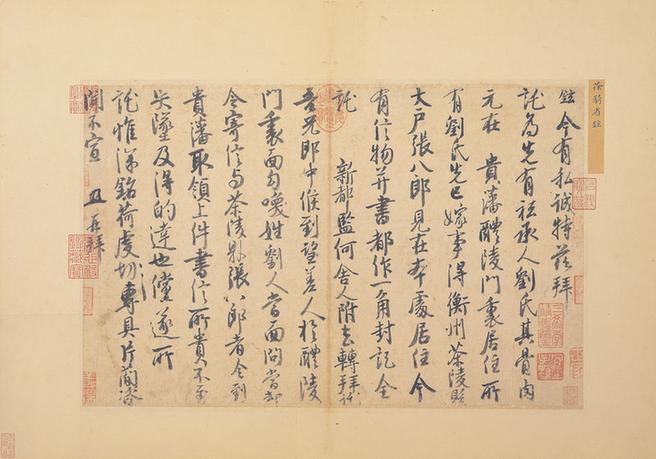 徐騎省鉉
鉉今有私誠特茲拜
託為先有祗承人劉氏其骨肉
元在 貴藩醴陵門裏居住所
有劉氏已嫁事得衡州茶陵縣
大戶張八郎見在本處居住今
有信物并書都作一角封記全
託 新都監何舍人附去轉拜託
吾兄郎中候到望差人於醴陵
門裏面勾喚姓劉人當面問當却
令寄信与茶陵縣張八郎者令到
貴藩取領上件書信所貴不至
失墜及得的達也儻遂所
託惟深銘荷虔切專具片簡咨
聞不宣 再拜